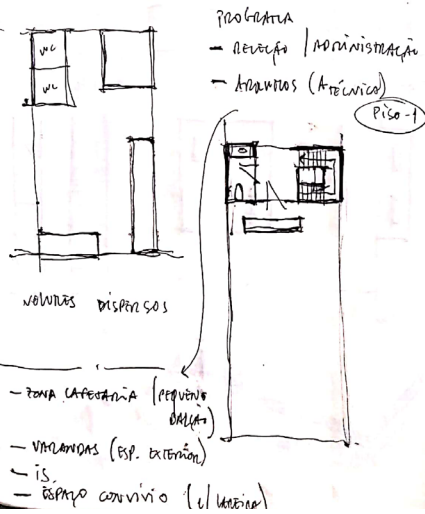 PROGRAMA
WC
WC
- RECEÇÃO / ADMINISTRAÇÃO
- ARQUIVOS (A. TÉCNICO)
PISO -1
VOLUMES DISPERSOS
- ZONA CAFETARIA (PEQUENO
BALCÃO)
- VARANDAS (ESP. EXTERIOR)
- IS.
- ESPAÇO CONVÍVIO (C/ LAREIRA)